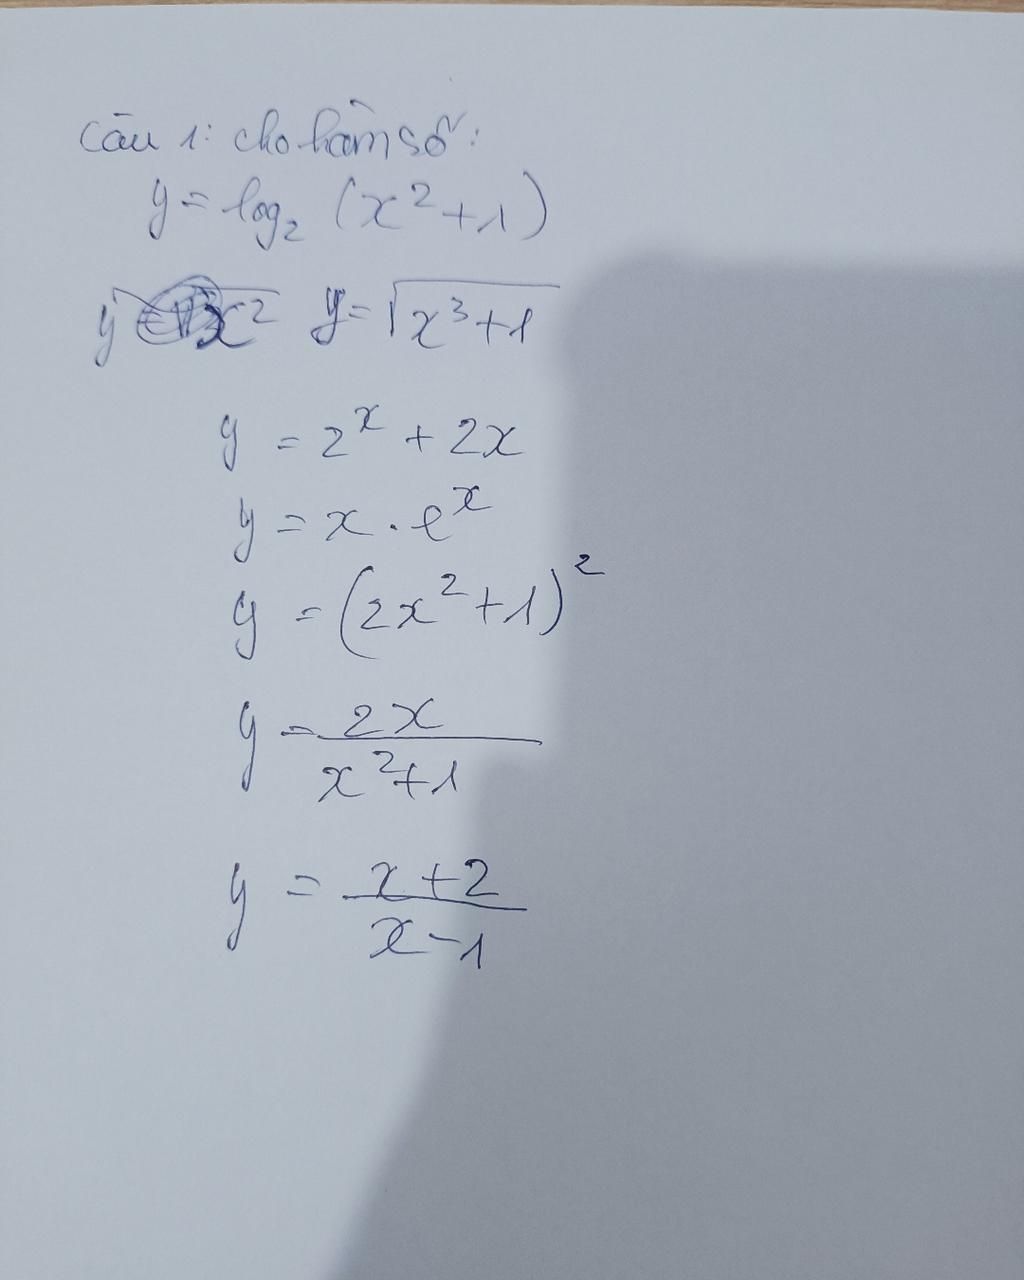 Câu 1: cho hàm số:
y = log₂ (x² + 1)
y = √(x³ + 1)
y = 2ˣ + 2x
y = x . eˣ
y = (2x² + 1)²
y = 2x / (x² + 1)
y = x + 2 / x - 1